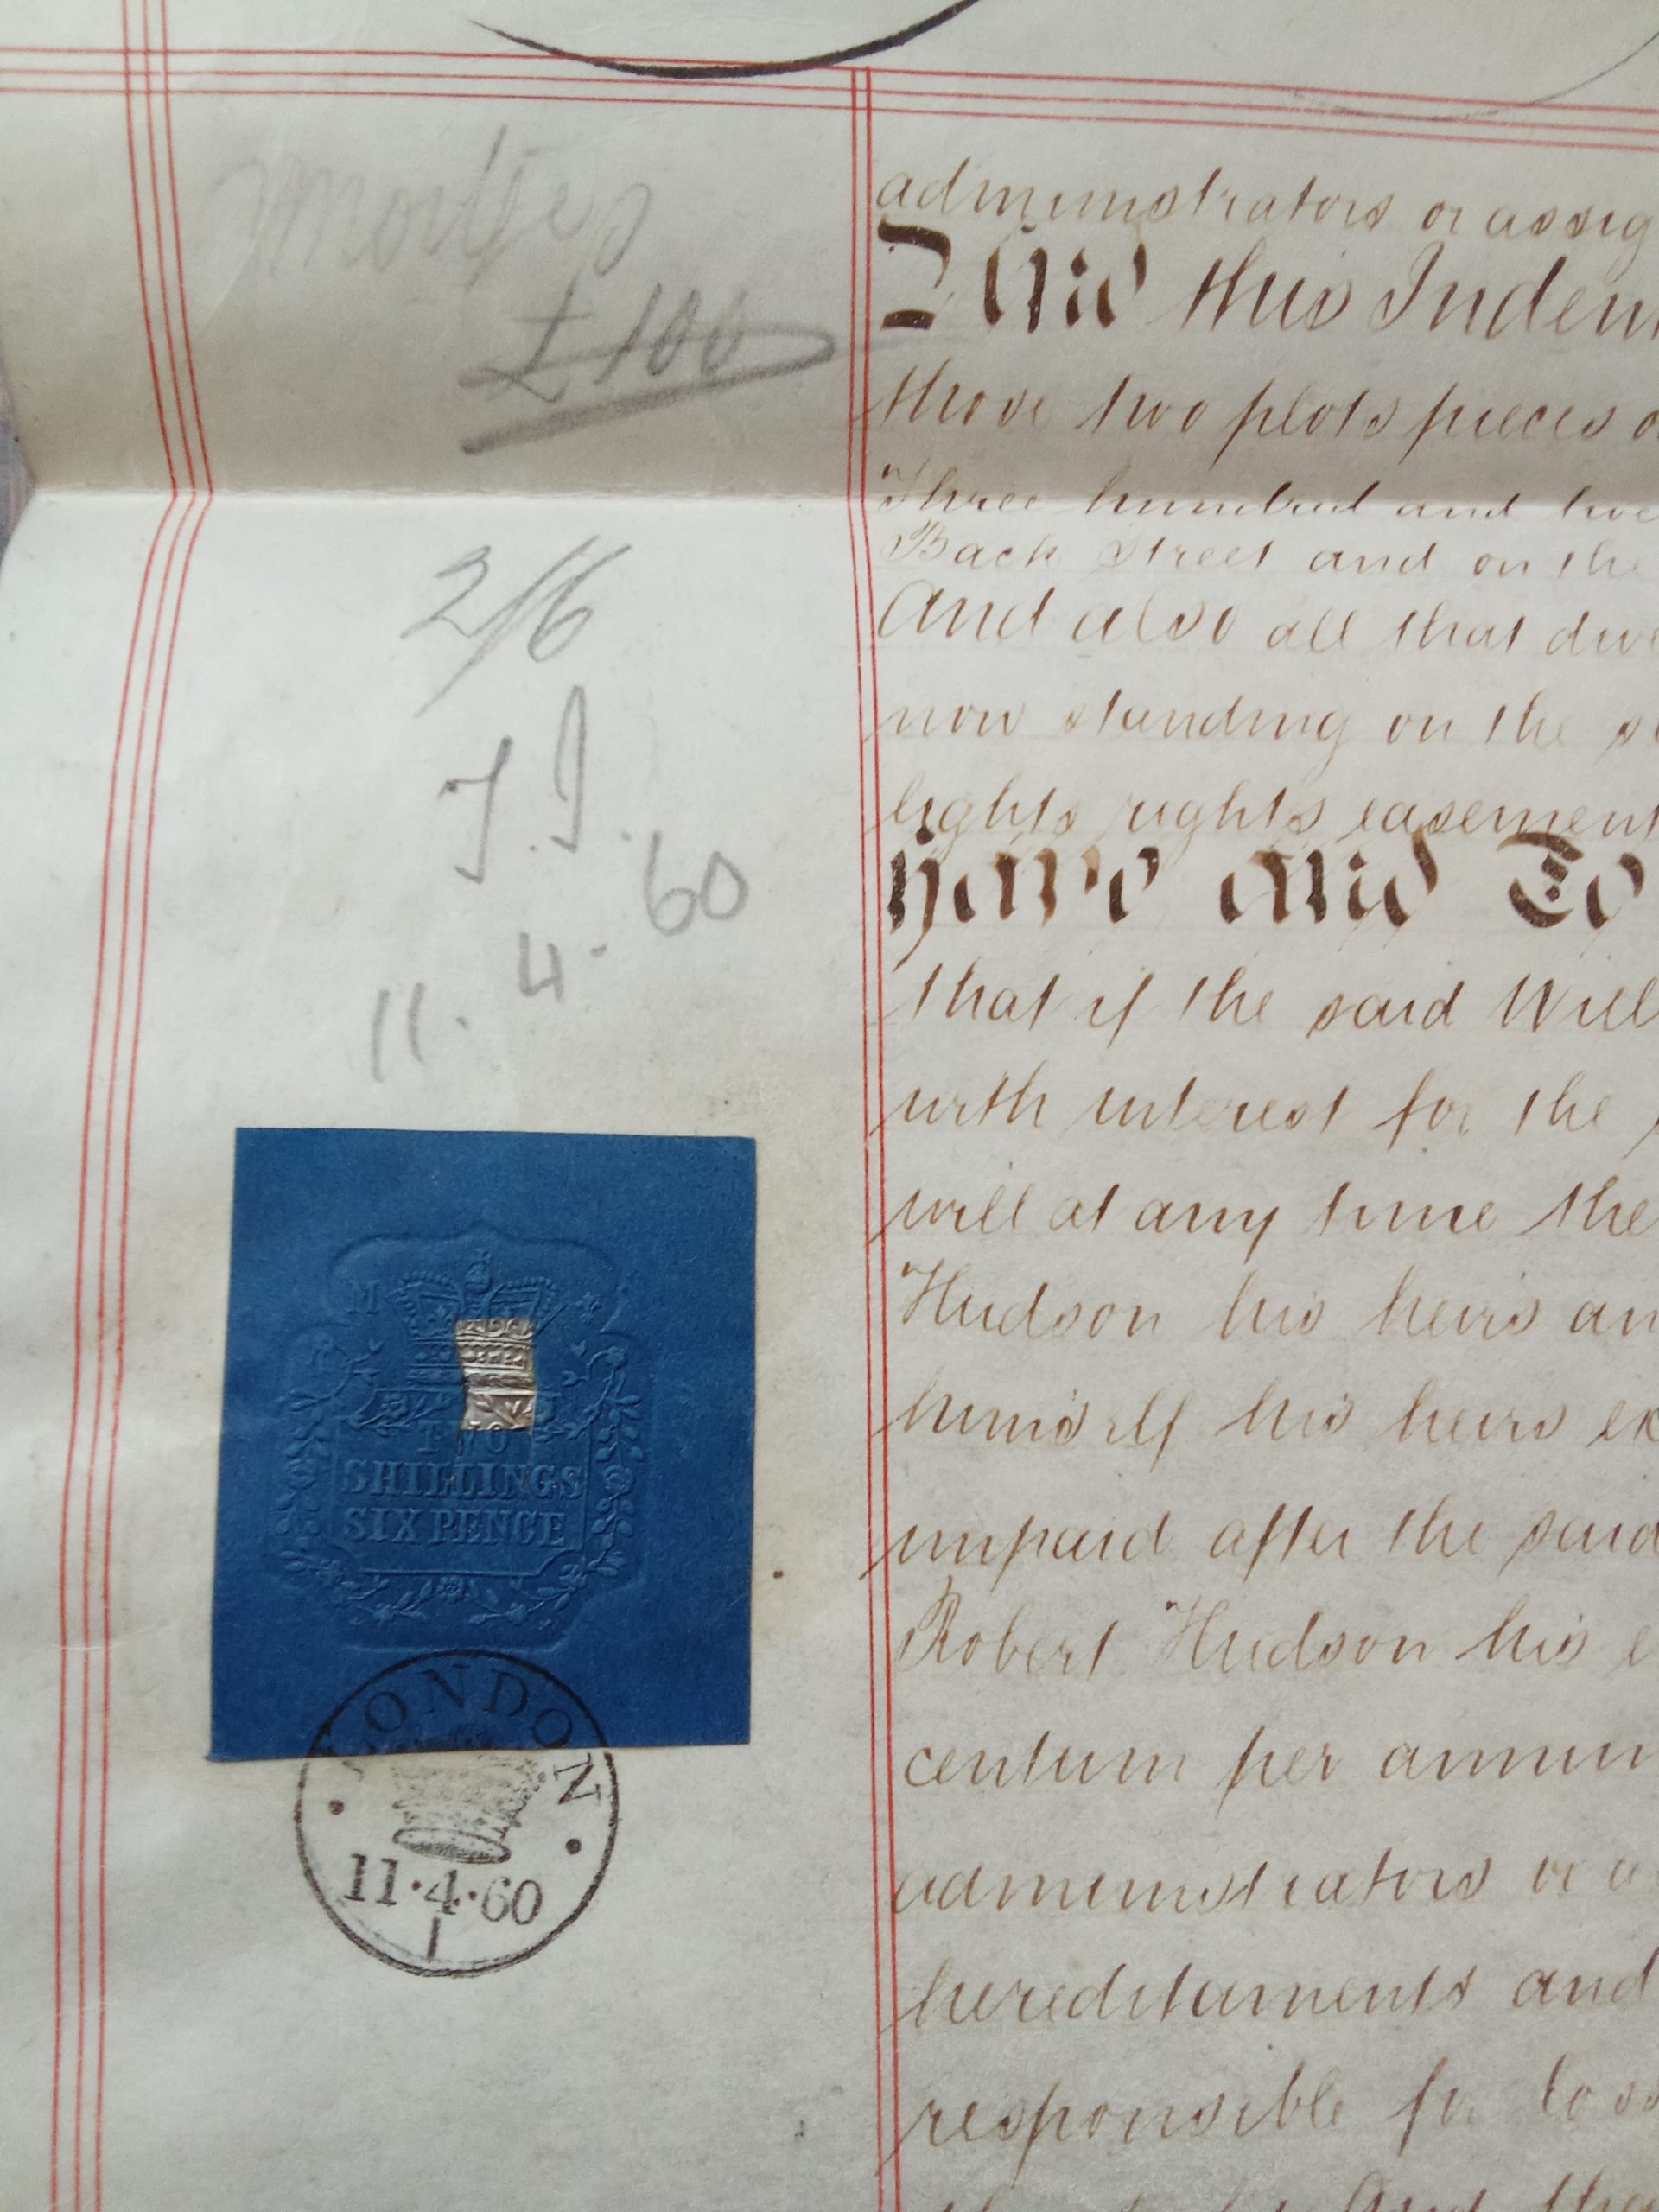 Mortges
£100
2/6
J.J.
11.4.60
M
TWO
SHILLINGS
SIX PENCE
LONDON
11·4·60
1
administrators or assig
And this Inden
those two plots pieces o
Three hundred and twe
Back Street and on the
And also all that dwe
now standing on the s
lights rights easement
have and To
that if the said Will
with interest for the
will at any time the
Hudson his heirs an
himself his heirs ex
unpaid after the said
Robert Hudson his e
centum per annum
administrators or a
hereditaments and
responsible for loss
And tha